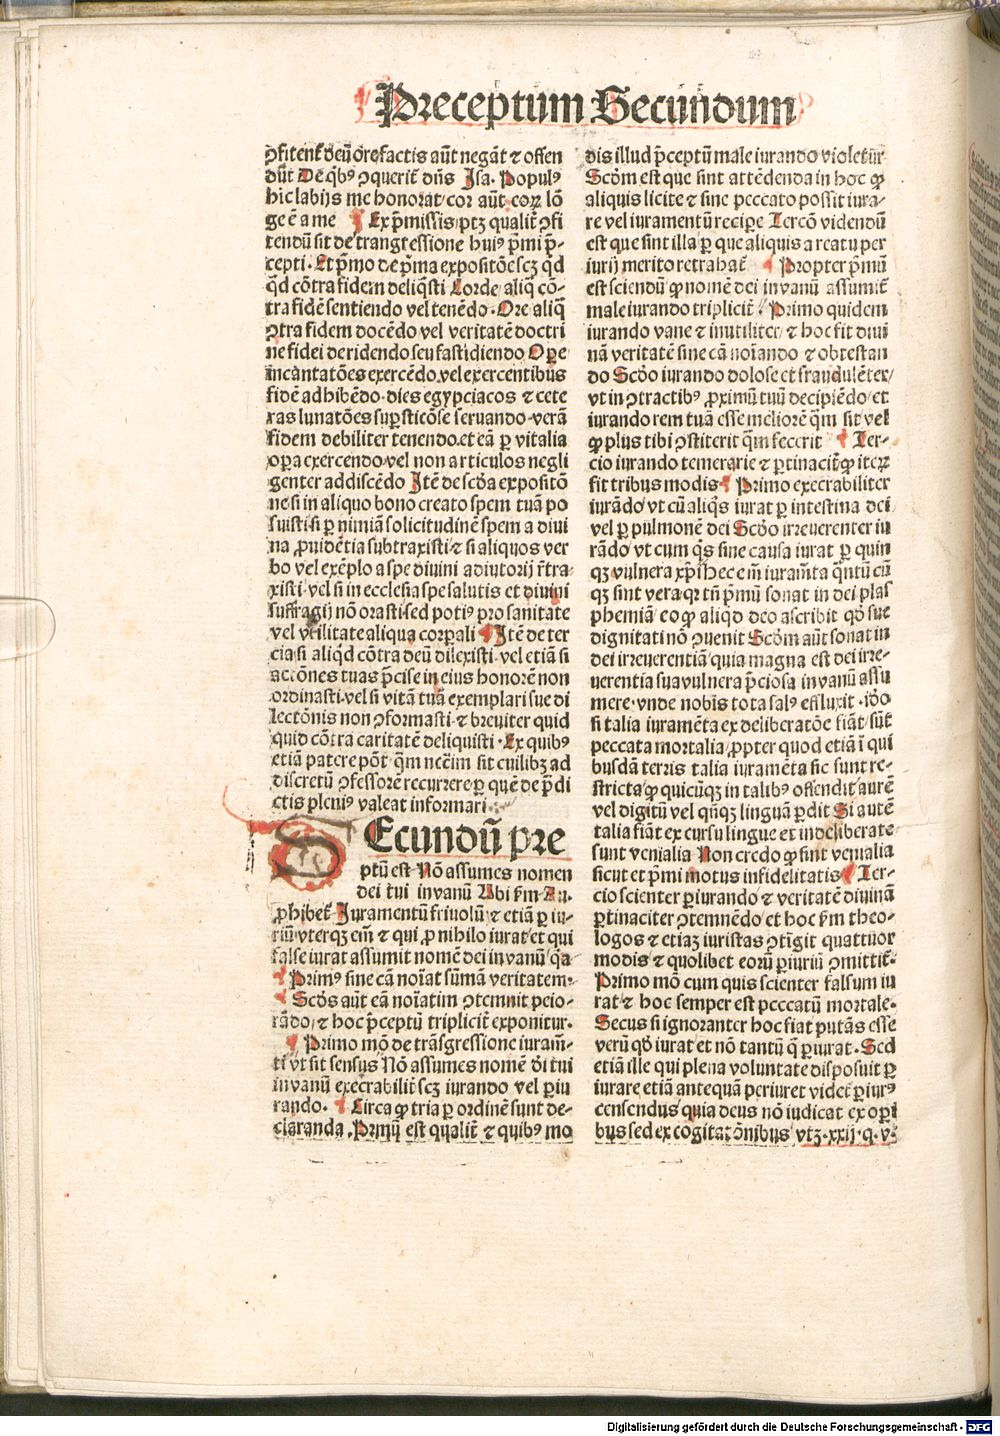 Preceptum Secundum
ꝯfitent᷑ deū ore factis aūt negāt ⁊ offen
dūt De qͥbꝰ ꝯquerit᷑ dn̄s Jsa. Populꝰ
hic labijs me honorat/cor aūt eoꝝ lō
ge ē a me Ex p̄missis ptꝫ qualit᷑ ꝯfi
tendū sit de trangressione huiꝰ p̄mi p̄-
cepti. Et p̄mo de p̄ma expositōe scꝫ qͥd
qͥd cōtra fidem deliq̄sti Corde/aliq̄ cō-
tra fidē sentiendo vel tenēdo. Ore aliq̄
ꝯtra fidem docēdo vel veritatē doctri
ne fidei deridendo seu fastidiendo Oꝑe
incantatōes exercēdo.vel exercentibus
fidē adhibēdo.dies egypciacos ⁊ cete
ras lunatōes suꝑsticōse seruando.verā
fidem debiliter tenendo.et eā ꝑ vitalia
oꝑa exercendo.vel non articulos negli
genter addiscēdo Jtē de scd̄a expositō
ne si in aliquo bono creato spem tuā po
suisti.si ꝑ nimiā solicitudinē spem a diui
na ꝓuidētia subtraxisti.⁊ si aliquos ver
bo vel exēplo a spe diuini adiutorij r̄tra-
xisti.vel si in ecclesia spe salutis et diuini
suffragij nō orasti.sed potiꝰ pro sanitate
vel vtilitate aliqua corꝑali Jtē de ter
cia.si aliqͥd cōtra deū dilexisti.vel etiā si
actōnes tuas p̄cise in eius honorē non
ordinasti.vel si vitā tuā exemplari siue di
lectōnis non ꝯformasti.⁊ breuiter quid
quid cōtra caritatē deliquisti. Ex quibꝰ
etiā patere pōt q̄m nc̄c̄im sit cuilibꝫ ad
discretū ꝯfessorē recurrere.ꝑ quē de p̄di
ctis pleniꝰ valeat informari.
SEcundū pre
ptū est Nō assumes nomen
dei tui in vanū Ubi fm. Au.
ꝓhibet᷑ Juramentū friuolū.⁊ etiā ꝑ iu-
riū.vterqꝫ em̄ ⁊ qui ꝓ nihilo iurat/et qui
false iurat assumit nomē dei in vanū/q̄a
Primꝰ sine cā noīat sūmā veritatem.
Scd̄s aūt eā noīatim ꝯtemnit peio-
rādo/⁊ hoc p̄ceptū triplicit᷑ exponitur.
Primo mō de trāsgressione iuram̄-
ti vt sit sensus Nō assumes nomē dī tui
in vanū execrabilit᷑ scꝫ iurando vel ꝑiu
rando. Circa qͦ tria ꝑ ordinē sunt de-
claranda. Primū est qualit᷑ ⁊ quibꝰ mo
dis illud p̄ceptū male iurando violet᷑ur
Scd̄m est que sint attēdenda in hoc qͦ
aliquis licite ⁊ sine peccato possit iura-
re vel iuramentū recipe Tercō videndū
est que sint illa ꝑ que aliquis a reatu per
iurij merito retrahat᷑ Propter p̄mū
est sciendū qͦ nomē dei in vanū assumit᷑
male iurando triplicit᷑. Primo quidem
iurando vane ⁊ inutiliter/⁊ hoc fit diui
nā veritatē sine cā noīando ⁊ obtestan
do Scd̄o iurando dolose et fraudulēter/
vt in ꝯtractibꝰ ꝓximū tuū decipiēdo/et
iurando rem tuā esse meliorē q̄m sit vel
qͦ plus tibi ꝯstiterit q̄m fecerit Ter-
cio iurando temerarie ⁊ ꝑtinacit᷑/qͦ iteꝝ
fit tribus modis Primo execrabiliter
iurādo/vt cū aliqͥs iurat ꝑ intestina dei
vel ꝑ pulmonē dei Scd̄o irreuerenter iu
rādo/vt cum qͥs sine causa iurat ꝑ quin
qꝫ vulnera xp̄i/hec em̄ iuram̄ta q̄ntū cū
qꝫ sint vera/qꝛ tn̄ p̄mū sonat in dei plas
phemiā eo qͦ aliqͥd deo ascribit qd̄ sue
dignitati nō ꝯuenit Scd̄m aūt sonat in
dei irreuerentiā/quia magna est dei irre-
uerentia sua vulnera p̄ciosa in vanū assu
mere.vnde nobīs tota salꝰ effluxit. id̄o
si talia iuramēta ex deliberatōe fiāt/sūt
peccata mortalia ꝓpter quod etiā ī qui
busdā terris talia iuramēta sic sunt re-
stricta/qͦ quicūqꝫ in talibꝰ offendit/aurē
vel digitū vel qn̄qꝫ linguā ꝑdit Si autē
talia fiāt ex cursu lingue et indeliberate
sunt venialia Non credo qͦ sint venialia
sicut et p̄mi motus infidelitatis Ter-
cio scienter ꝑiurando ⁊ veritatē diuinā
ꝑtinaciter ꝯtemnēdo/et hoc fm theo-
logos ⁊ etiaꝫ iuristas ꝯtīgit quattuor
modis ⁊ quolibet eorū ꝑiuriū ꝯmittit᷑.
Primo mō cum quis scienter falsum iu
rat/⁊ hoc semper est peccatū mortale.
Secus si ignoranter hoc fiat putās esse
verū qd̄ iurat et nō tantū q̄ ꝑiurat. Sed
etiā ille qui plena voluntate disposuit ꝑ
iurare etiā antequā periuret videt᷑ ꝑiurꝰ
censendus/quia deus nō iudicat ex oꝑi
bus sed ex cogitatōnibus/vtꝫ.xxij.q.v.
Digitalisierung gefördert durch die Deutsche Forschungsgemeinschaft - DFG